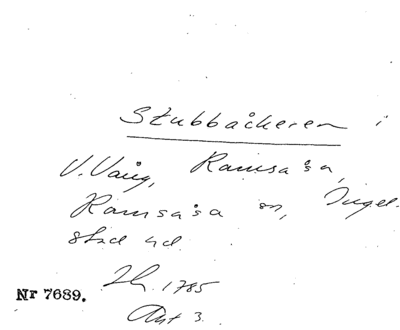 Stubbåkeren i
V. Vång, Ramsåsa,
Ramsåsa sn, Ingel-
stad hd.
1785
Nr 7689.
Akt 3.